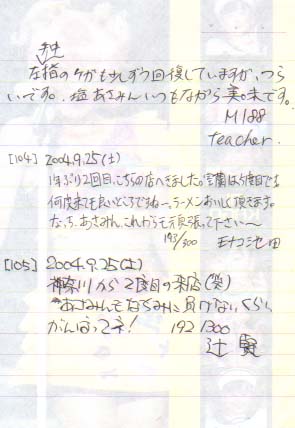 左指のケガも少しずつ回復していますが、つら
いです。塩あさみんいつもながら美味です。
M188
teacher.
[104] 2004.9.25(土)
1年ぶり2回目、こちらの店へきました。室蘭は5度目です
何度来ても良いところですね〜。ラーメンおいしく頂きます。
なっち、あさみん、これからも頑張って下さい〜
193/300 モナコ池田
[105] 2004.9.25(土)
神奈川から2度目の来店(笑)
あさみんもなちみに負けないくらい
がんばってネ! 192/300
辻 賢